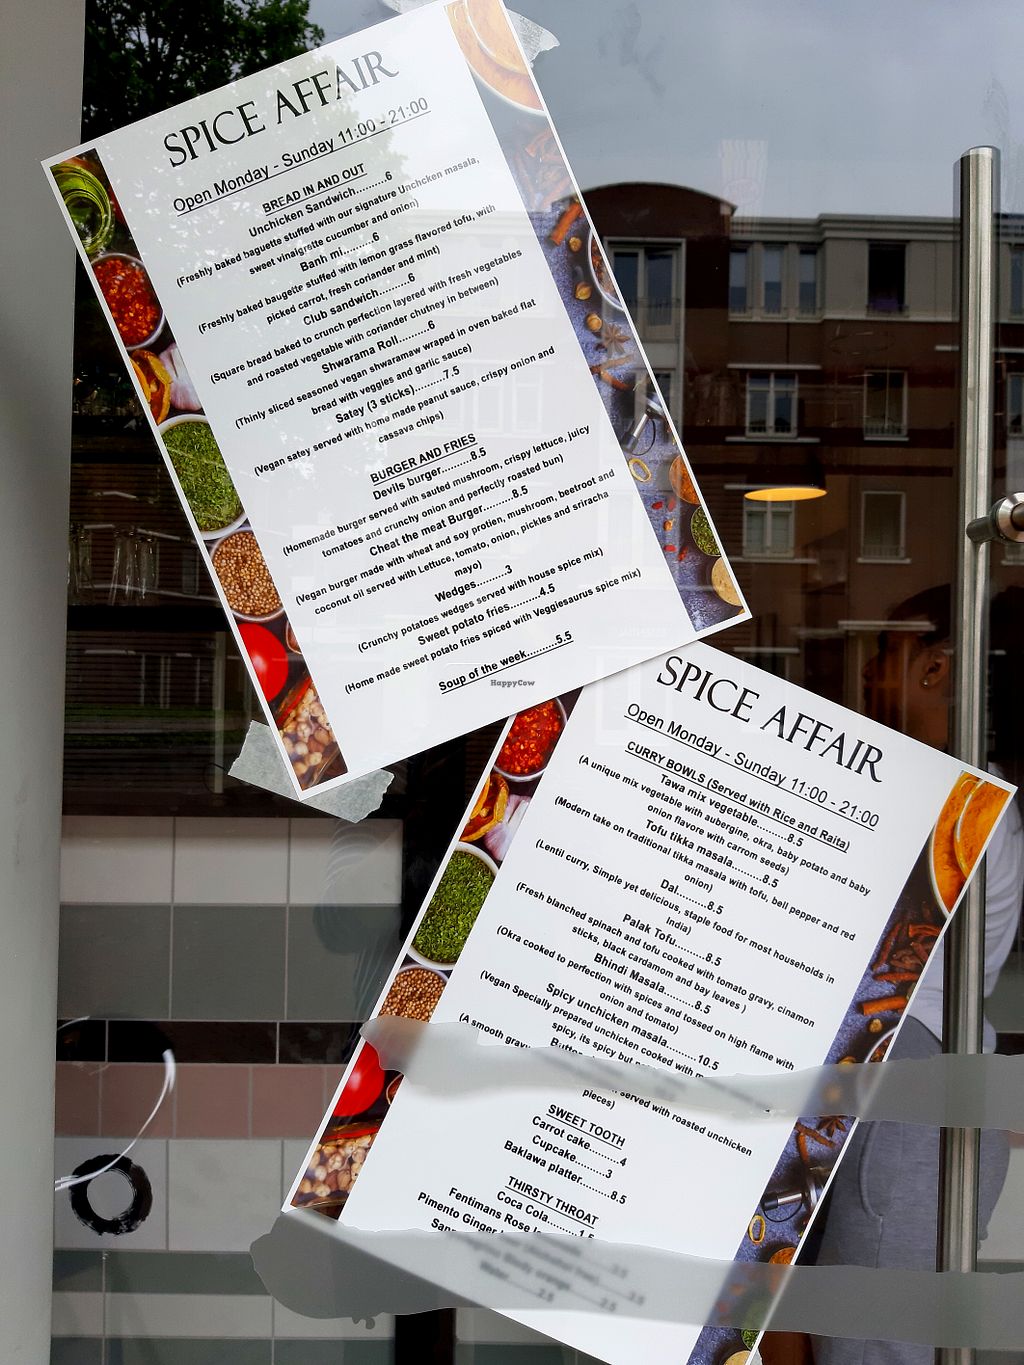 SPICE AFFAIR
Open Monday - Sunday 11:00 - 21:00
BREAD IN AND OUT
Unchicken Sandwich..........6
(Freshly baked baguette stuffed with our signature Unchcken masala,
sweet vinaigrette cucumber and onion)
Banh mi..........6
(Freshly baked baugette stuffed with lemon grass flavored tofu, with
picked carrot, fresh coriander and mint)
Club sandwich..........6
(Square bread baked to crunch perfection layered with fresh vegetables
and roasted vegetable with coriander chutney in between)
Shwarama Roll..........6
(Thinly sliced seasoned vegan shwaramaw wraped in oven baked flat
bread with veggies and garlic sauce)
Satey (3 sticks)..........7.5
(Vegan satey served with home made peanut sauce, crispy onion and
cassava chips)
BURGER AND FRIES
Devils burger..........8.5
(Homemade burger served with sauted mushroom, crispy lettuce, juicy
tomatoes and crunchy onion and perfectly roasted bun)
Cheat the meat Burger..........8.5
(Vegan burger made with wheat and soy protien, mushroom, beetroot and
coconut oil served with Lettuce, tomato, onion, pickles and sriracha
mayo)
Wedges..........3
(Crunchy potatoes wedges served with house spice mix)
Sweet potato fries..........4.5
(Home made sweet potato fries spiced with Veggiesaurus spice mix)
Soup of the week..........5.5
HappyCow
SPICE AFFAIR
Open Monday - Sunday 11:00 - 21:00
CURRY BOWLS (Served with Rice and Raita)
Tawa mix vegetable..........8.5
(A unique mix vegetable with aubergine, okra, baby potato and baby
onion flavore with carrom seeds)
Tofu tikka masala..........8.5
(Modern take on traditional tikka masala with tofu, bell pepper and red
onion)
Dal..........8.5
(Lentil curry, Simple yet delicious, staple food for most households in
India)
Palak Tofu..........8.5
(Fresh blanched spinach and tofu cooked with tomato gravy, cinamon
sticks, black cardamom and bay leaves )
Bhindi Masala..........8.5
(Okra cooked to perfection with spices and tossed on high flame with
onion and tomato)
Spicy unchicken masala..........10.5
(Vegan Specially prepared unchicken cooked with
spicy, its spicy but
(A smooth served with roasted unchicken
pieces)
SWEET TOOTH
Carrot cake..........4
Cupcake..........3
Baklawa platter..........8.5
THIRSTY THROAT
Coca Cola..........1.5
Fentimans Rose
Pimento Ginger
3.5
3.5
2.5
Water..........2.5